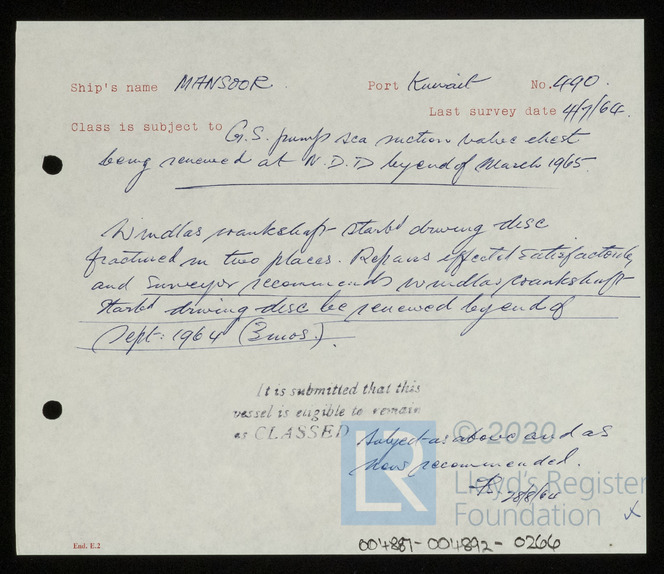 Ship's name MANSOOR. Port Kuwait No. 490.
Last survey date 4/7/64.
Class is subject to G.S. pump sea suction valve chest
being renewed at N.D.D by end of March 1965.
Windlas crankshaft starbd driving disc
fractured in two places. Repairs effected satisfactorily
and Surveyor recommends windlas crankshaft
starbd driving disc be renewed by end of
Sept: 1964 (3mos.).
It is submitted that this
vessel is eligible to remain
as CLASSED subject as above and as
now recommended.
28/8/64
© 2020
LR
Lloyd's Register
Foundation
x
End. E.2
004887-004892-0266